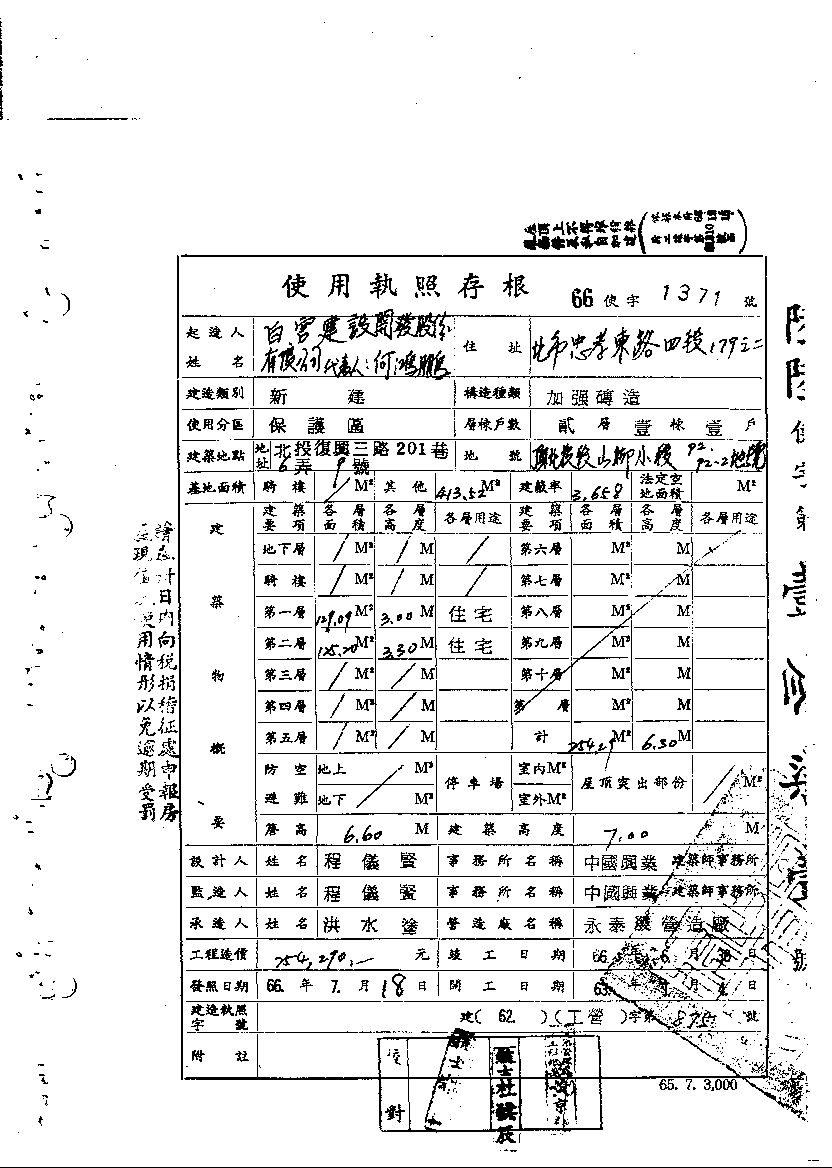 使用執照存根 66 使字 1371 號
起造人姓名 白宮建設開發股份有限公司 代表人:何鴻鵬 住址 北市忠孝東路四段179之二
建造類別 新建 構造種類 加强磚造
使用分區 保護區 層棟戶數 貳層壹棟壹戶
建築地點 地址 北投復興三路201巷6弄9號 地號 小段92.92-2地號
基地面積 騎樓 / M² 其他 413.52 M² 建蔽率 3,658 法定空地面積 M²
建築物概要
建築要項 各層面積 各層高度 各層用途 建築要項 各層面積 各層高度 各層用途
地下層 / M² / M / 第六層 M² M
騎樓 / M² / M / 第七層 M² M
第一層 129.09 M² 3.00 M 住宅 第八層 M² M
第二層 125.20 M² 3.30 M 住宅 第九層 M² M
第三層 / M² / M 第十層 M² M
第四層 / M² / M 第 層 M² M
第五層 / M² / M 計 254.29 M² 6.30 M
防空避難 地上 M² 停車場 室內 M² 屋頂突出部份 / M²
地下 M² 室外 M²
簷高 6.60 M 建築高度 7.00 M
設計人 姓名 程儀賢 事務所名稱 中國興業 建築師事務所
監造人 姓名 程儀賢 事務所名稱 中國興業 建築師事務所
承造人 姓名 洪水塗 營造廠名稱 永泰 營造廠
工程造價 254,290.- 元 竣工日期 66. 年 6. 月 30 日
發照日期 66. 年 7. 月 18 日 開工日期 63. 年 月 日
建造執照字號 建( 62. ) (工營) 字第 875 號
附註
校對
65. 7. 3,000
請 日內向稅捐稽征處申報房
屋現值 使用情形以免逾期受罰